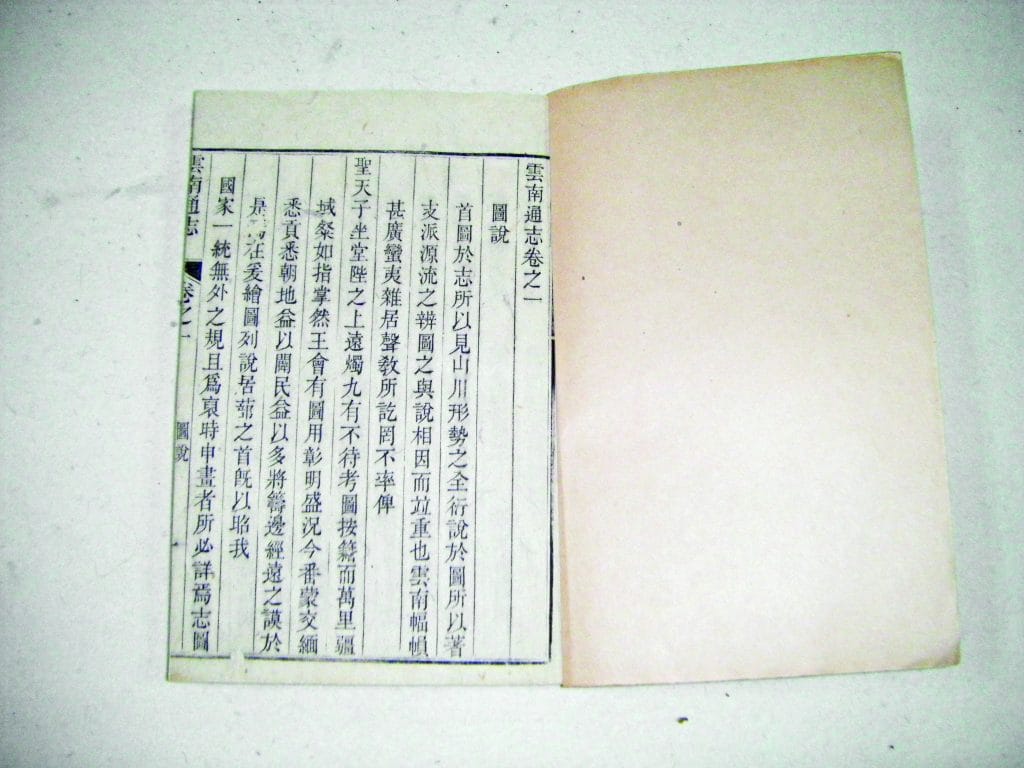 雲南通志卷之一
圖說
首圖於志所以見山川形勢之全衍說於圖所以著
支派源流之辨圖之與說相因而竝重也雲南幅幀
甚廣蠻夷雜居聲敎所訖罔不率俾
聖天子坐堂陛之上遠燭九有不待考圖按籍而萬里疆
域粲如指掌然王會有圖用彰明盛況今番蒙交緬
悉貢悉朝地益以闢民益以多將籌邊經遠之謨於
是在爰繪圖列說居茆之首旣以昭我
國家一統無外之規且爲裒時申畫者所必詳焉志圖
雲南通志
卷之一
圖說